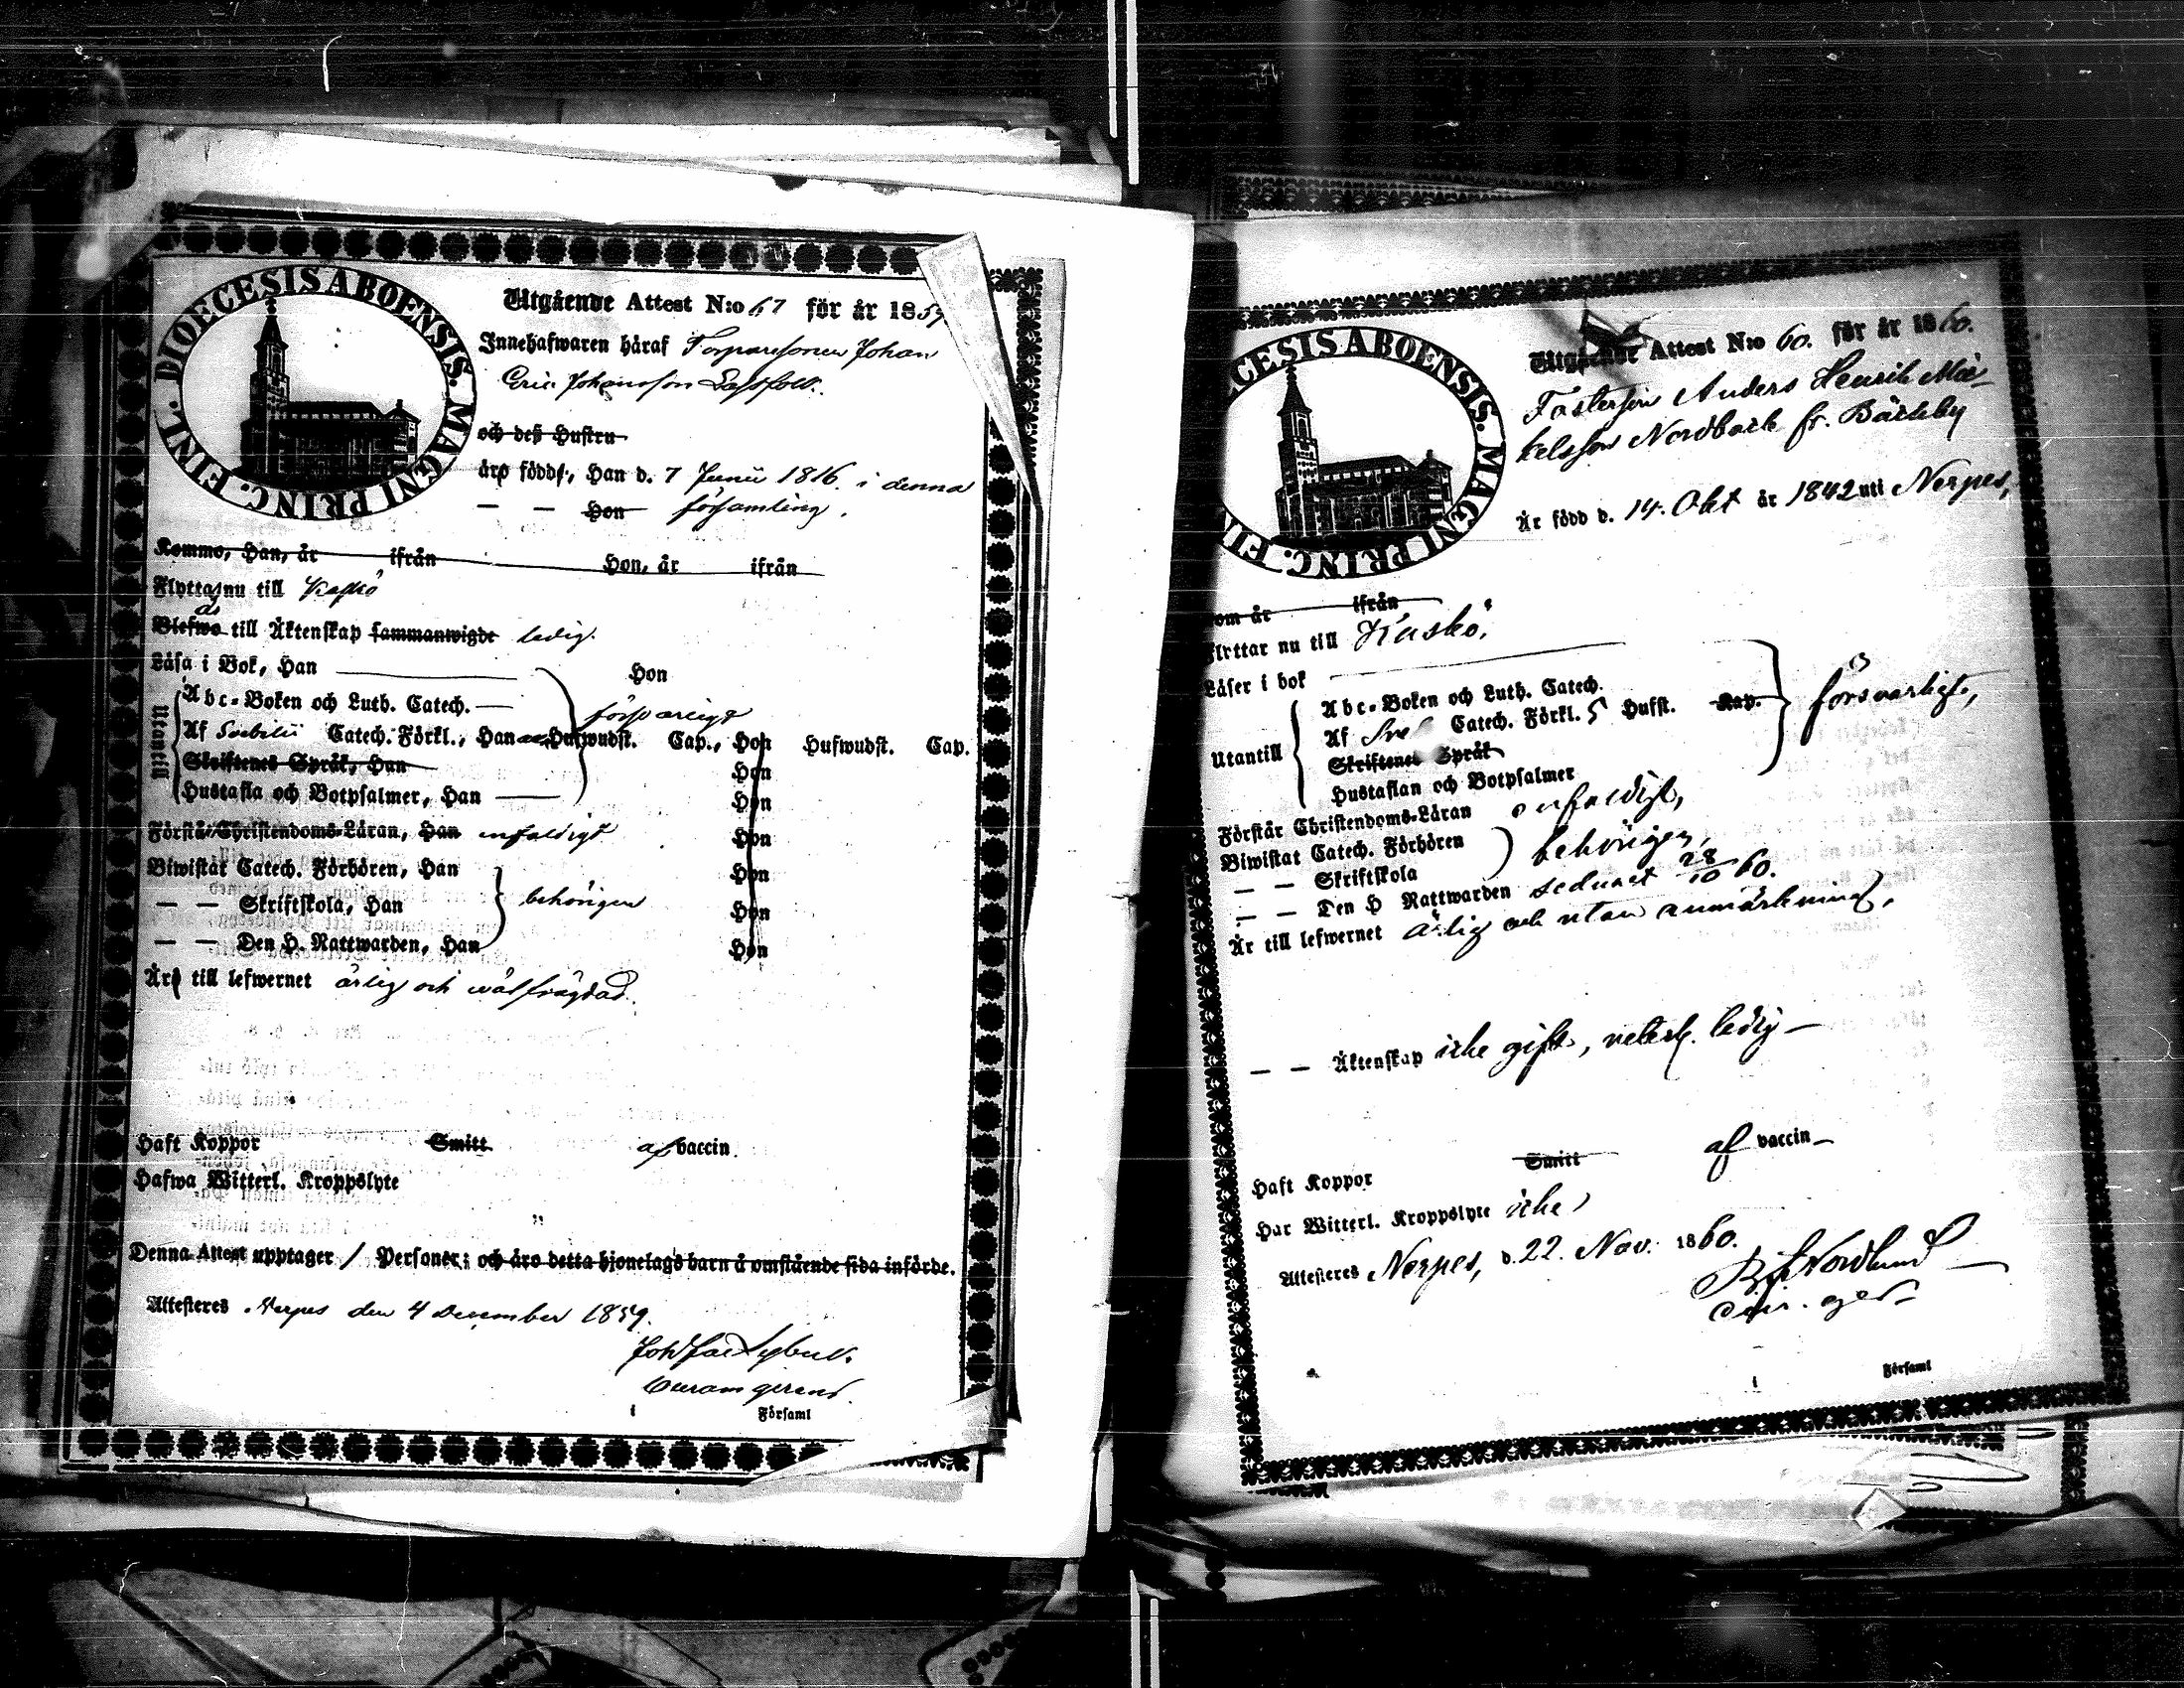 DIOECESIS ABOENSIS. MAGNI PRINC. FINL.
Utgående Attest N:o 67 för år 1859
Innehafwaren häraf Torparesonen Johan
Eric Johansson
och deß Hustru
äro född, Han d. 7 Junii 1816. i denna
— — Hon församling.
Kommo, Han, år ifrån Hon, år ifrån
Flyttar nu till Kaskö
till Äktenskap sammanwigde ledig.
Läsa i Bok, Han Hon
Utantill
Abc-Boken och Luth. Catech. — försvarligt
Af Svebilii Catech. Förkl., Han Hufwudst. Cap., Hon Hufwudst. Cap.
Skriftenes Språk, Han Hon
Hustafla och Botpsalmer, Han — Hon
Förstår Christendoms-Läran, Han enfaldigt Hon
Biwistat Catech. Förhören, Han Hon
— — Skriftskola, Han behörigen Hon
— — Den H. Nattwarden, Han Hon
Äro till lefwernet ärlig och wälfrägdad.
Haft Koppor Smitt af vaccin.
Hafwa Witterl. Kroppslyte
Denna Attest upptager 1 Personer; och äro detta hjonelags barn å omstående sida införde.
Attesteras Nerpes den 4 December 1859.
Joh Jac
Curam gerens.
i Församl
CESIS ABOENSIS. MAGNI PRINC. FI
Utgående Attest N:o 60. för år 1860.
Fosterson Anders Henrik Mi-
kelsson Nordback fr. Bäckby
Är född d. 14. Okt år 1842 uti Nerpes,
om år ifrån
Flyttar nu till Kaskö.
Läser i bok
Utantill
Abc-Boken och Luth. Catech.
Af Catech. Förkl. 5 Hufst. Kap. försvarligt,
Skriftenes Språk
Hustaflan och Botpsalmer
Förstår Christendoms-Läran enfaldigt,
Biwistat Catech. Förhören
— — Skriftskola behörigen,
— — Den H Nattwarden sednast 28/10 60.
Är till lefwernet ärlig och utan anmärkning,
— — Äktenskap icke gift, ledig —
Haft Koppor Smitt af vaccin —
Har Witterl. Kroppslyte icke
Attesteres Nerpes, d. 22. Nov. 1860.
Nordlund
i Församl